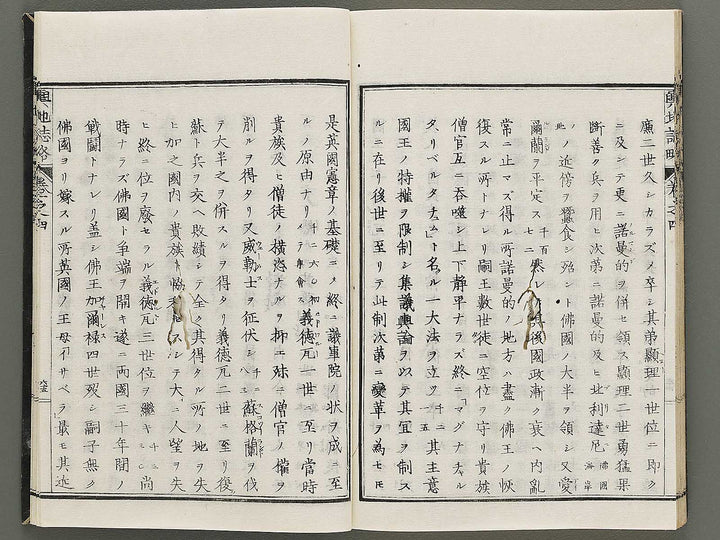 廉三世久シカラズノ卒シ其弟顯理一世位ニ即ク
ニ及ンテ更ニ諾曼的ヲ併セ領ス顯理二世勇猛果
斷善ク兵ヲ用ヒ次第ニ諾曼的及ヒ北利達尼 佛國海岸
此ノ近傍ヲ蠶食シ殆ント佛國ノ大半ヲ領シ又愛
爾蘭ヲ平定ス 千百七二 然レ 其後國政漸ク衰ヘ内亂
常ニ止マズ得ル所諾曼的ノ地方ハ盡ク佛王ノ恢
復スル所トナレリ嗣王數世徒ニ空位ヲ守リ貴族
僧官互ニ吞噬シ上下靜平ナラズ終ニマグナチル
タリベルタチュムト名ル一大法ヲ立ツ 千二一五 其主意
國王ノ特權ヲ限制シ集議輿論ヲ以テ其宜ヲ制ス
ルニ在リ後世ニ至リテ此制次第ニ變革ヲ為セモ
輿地誌略 卷之四
是英國憲章ノ基礎ニノ終ニ議事院ノ状ヲ成ニ至
ルノ原由ナリ 義德瓦一世ニ至リ當時
貴族及ヒ僧徒ノ橫恣ナルヲ抑エ殊ニ僧官ノ權ヲ
削ルヲ得タリ又威勒士ヲ征伏シ 蘇格蘭ヲ伐
テ大半之ヲ併スルヲ得タリ義德瓦二世ニ至リ復
蘇ト兵ヲ交ヘ敗績シテ全ク其得タル所ノ地ヲ失
ヒ加之國内ノ貴族ト スシテ大ニ人望ヲ失
ヒ終ニ位ヲ廢セラル義德瓦三世位ヲ繼キ 尚
時ナラズ佛國ト爭端ヲ開キ遂ニ兩國三十年間ノ
戰鬪トナレリ蓋シ佛王加爾祿四世歿シ嗣子無ク
佛國ヨリ嫁スル所英國ノ王母 サベラ最モ其近